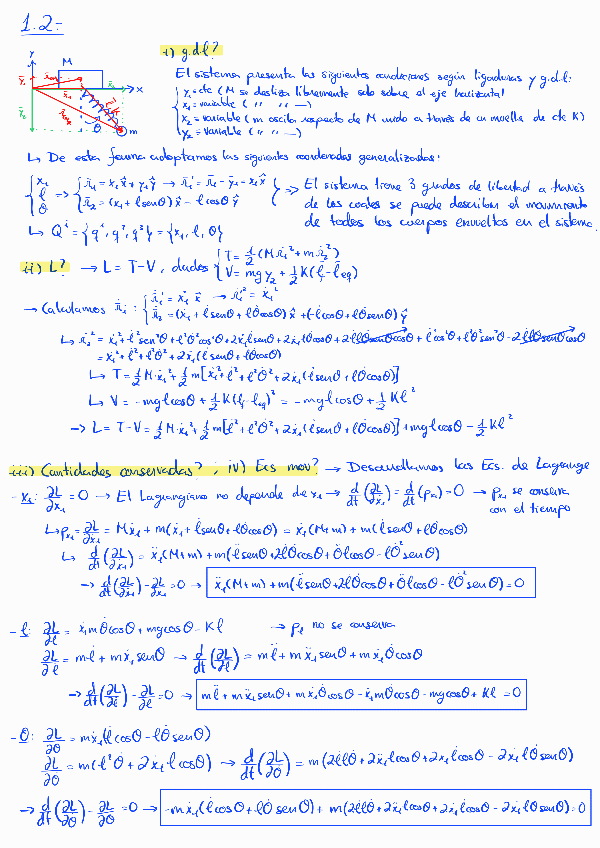 1.2:
i) g.d.l?
El sistema presenta las siguientes condiciones según ligaduras y g.d.l:
y₁ = cte (M se desliza libremente solo sobre el eje horizontal)
x₁ = variable ( " " — )
x₂ = variable (m oscila respecto de M unido a través de un muelle de cte K)
y₂ = variable ( " " — )
y
M
x
m
θ
↳ De esta forma adoptamos las siguientes coordenadas generalizadas:
{x₁, l, θ} => {r̄₁ = x₁x̂ + y₁ŷ → r̄₁' = r̄₁ - ȳ₁ = x₁x̂
r̄₂ = (x₁ + l senθ)x̂ - l cosθ ŷ} => El sistema tiene 3 grados de libertad a través
de los cuales se puede describir el movimiento
de todos los cuerpos envueltos en el sistema.
↳ Qⁱ = {q¹, q², q³} = {x₁, l, θ}
ii) L? → L = T-V, dados {T = 1/2 (Mṙ₁² + mṙ₂²)
V = mgy₂ + 1/2 K(l̄f - l̄eq)
→ Calculamos ṙi: {ṙ₁' = ẋ₁ x̂ → ṙ₁'² = ẋ₁²
ṙ₂ = (ẋ₁ + l̇ senθ + lθ̇ cosθ) x̂ + (-l̇ cosθ + lθ̇ senθ) ŷ
↳ ṙ₂² = ẋ₁² + l̇² sen²θ + l²θ̇² cos²θ + 2ẋ₁l̇ senθ + 2ẋ₁lθ̇ cosθ + 2l̇lθ̇ senθcosθ + l̇² cos²θ + l²θ̇² sen²θ - 2l̇lθ̇ senθcosθ
= ẋ₁² + l̇² + l²θ̇² + 2ẋ₁(l̇ senθ + lθ̇ cosθ)
↳ T = 1/2 M·ẋ₁² + 1/2 m[ẋ₁² + l̇² + l²θ̇² + 2ẋ₁(l̇ senθ + lθ̇ cosθ)]
↳ V = -mgl cosθ + 1/2 K(lf - leq)² = -mgl cosθ + 1/2 Kl²
→ L = T-V = 1/2 M·ẋ₁² + 1/2 m[l̇² + l²θ̇² + 2ẋ₁(l̇ senθ + lθ̇ cosθ)] + mgl cosθ - 1/2 Kl²
iii) Cantidades conservadas?, iv) Ecs mov? → Desarrollamos las Ecs. de Lagrange
- x₁: ∂L/∂x₁ = 0 → El Lagrangiano no depende de x₁ → d/dt (∂L/∂ẋ₁) = d/dt (pₓ₁) = 0 → pₓ₁ se conserva
con el tiempo
↳ pₓ₁ = ∂L/∂ẋ₁ = Mẋ₁ + m(ẋ₁ + l̇ senθ + lθ̇ cosθ) = ẋ₁(M+m) + m(l̇ senθ + lθ̇ cosθ)
↳ d/dt (∂L/∂ẋ₁) = ẍ₁(M+m) + m(l̈ senθ + 2l̇θ̇ cosθ + θ̈l cosθ - lθ̇² senθ)
→ d/dt (∂L/∂ẋ₁) - ∂L/∂x₁ = 0 → ẍ₁(M+m) + m(l̈ senθ + 2l̇θ̇ cosθ + θ̈l cosθ - lθ̇² senθ) = 0
- l: ∂L/∂l = ẋ₁mθ̇ cosθ + mg cosθ - Kl → pl no se conserva
∂L/∂l̇ = ml̇ + mẋ₁ senθ → d/dt (∂L/∂l̇) = ml̈ + mẍ₁ senθ + mẋ₁θ̇ cosθ
→ d/dt (∂L/∂l̇) - ∂L/∂l = 0 → ml̈ + mẍ₁ senθ + mẋ₁θ̇ cosθ - ẋ₁mθ̇ cosθ - mg cosθ + Kl = 0
- θ: ∂L/∂θ = mẋ₁(l̇ cosθ - lθ̇ senθ)
∂L/∂θ̇ = m(l²θ̇ + 2ẋ₁l cosθ) → d/dt (∂L/∂θ̇) = m(2l̇lθ̇ + 2ẍ₁l cosθ + 2ẋ₁l̇ cosθ - 2ẋ₁lθ̇ senθ)
→ d/dt (∂L/∂θ̇) - ∂L/∂θ = 0 → -mẋ₁(l̇ cosθ + lθ̇ senθ) + m(2l̇lθ̇ + 2ẍ₁l cosθ + 2ẋ₁l̇ cosθ - 2ẋ₁lθ̇ senθ) = 0